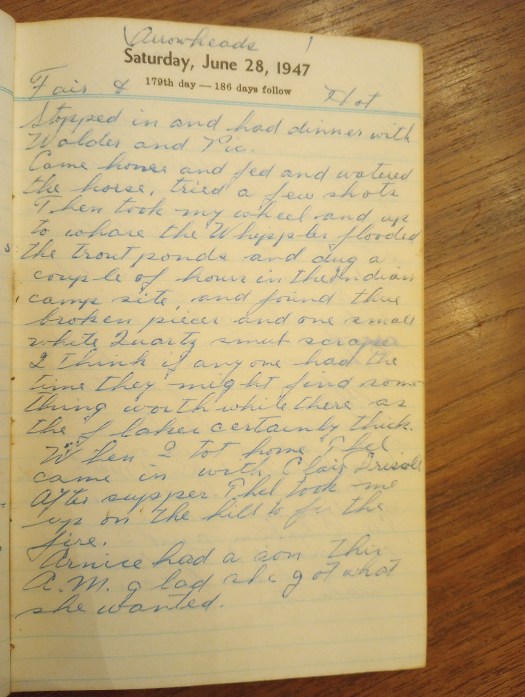 Arrowheads
Saturday, June 28, 1947
179th day — 186 days follow
Fair & Hot
Stopped in and had dinner with
Walder and Vic.
Came home and fed and watered
the horse, tried a few shots
Then took my wheel and up
to whare the Whyppler flooded
the trout ponds and dug a
couple of hours in the Indian
camp site, and found three
broken pieces and one small
white Quartz smut scraper
I think if any one had the
time they might find some
thing worth while there as
the flakes certainly thick.
When I got home Thel
came in with Clair Driscoll
After supper Thel took me
up on the hill to the
fire.
Arnice had a son this
A.M. glad she got what
she wanted.